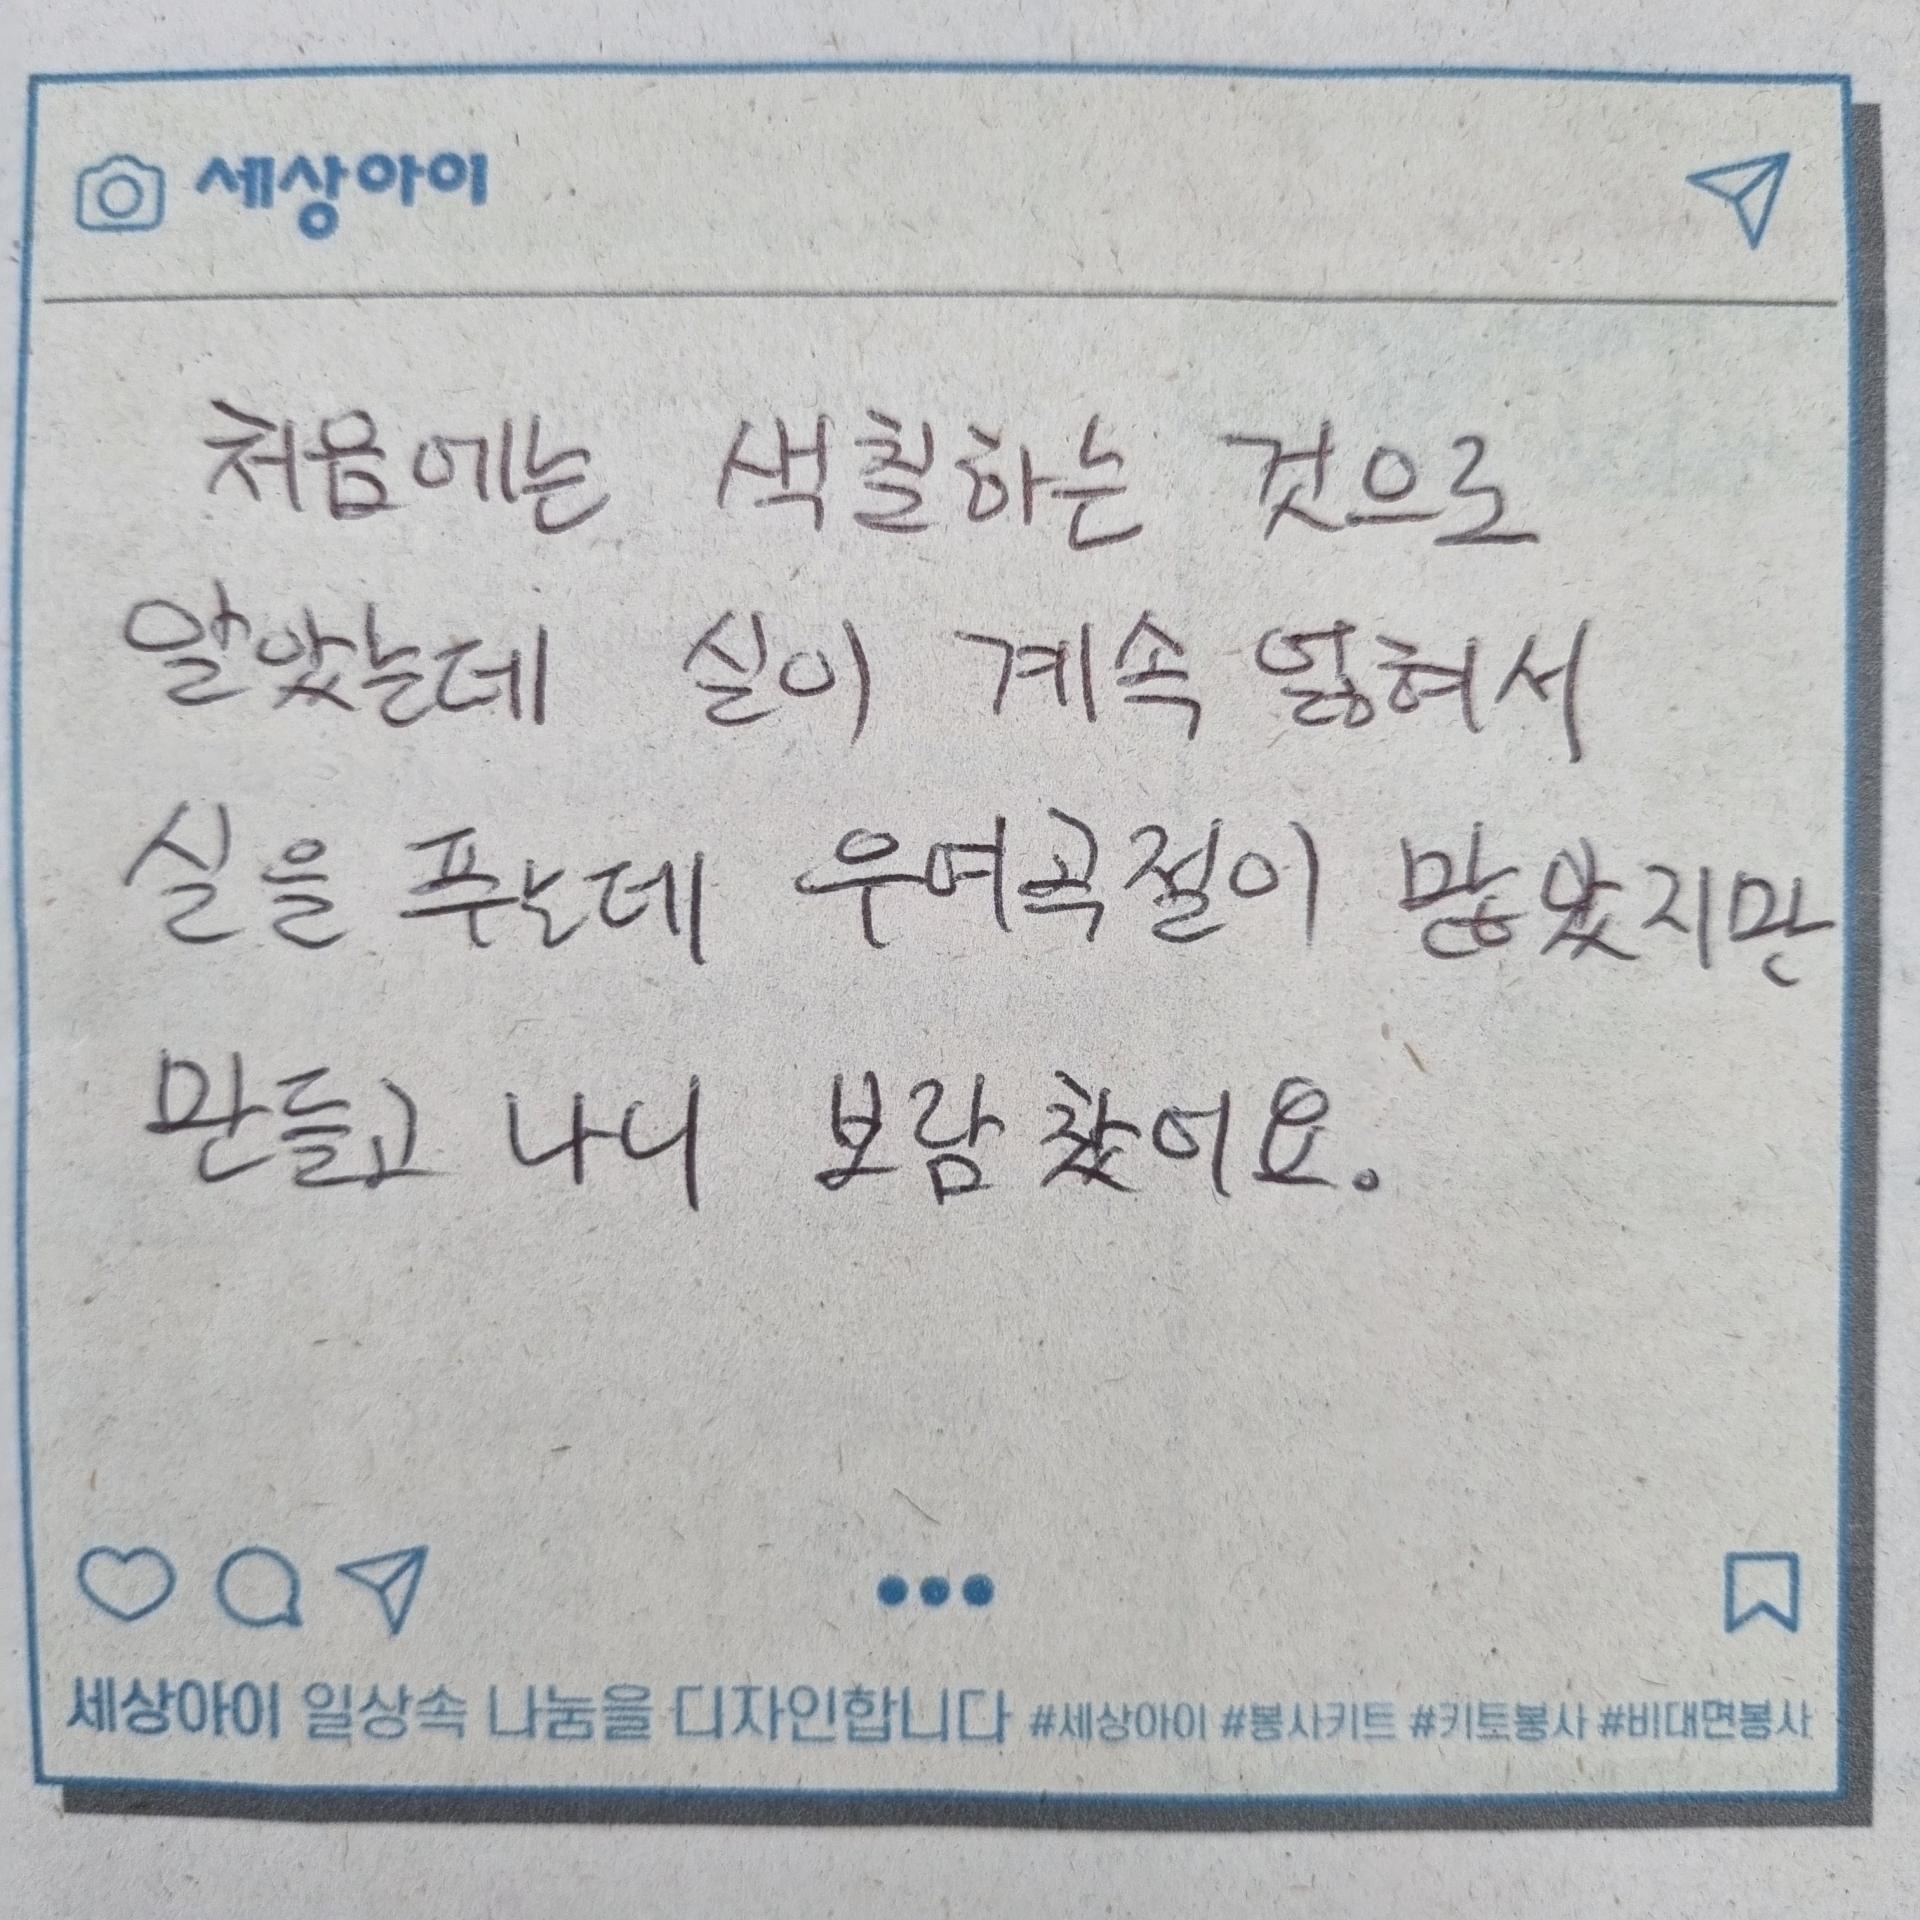 세상아이
처음에는 색칠하는 것으로
알았는데 실이 계속 얽혀서
실을 푸는데 우여곡절이 많았지만
만들고 나니 보람찼어요.
세상아이 일상속 나눔을 디자인합니다 #세상아이 #봉사키트 #키토봉사 #비대면봉사